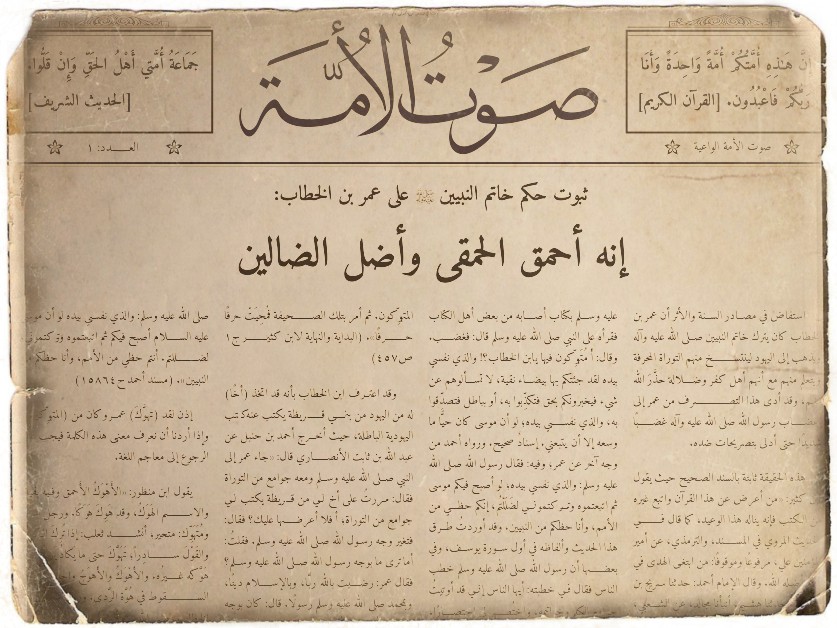 إنَّ هَـٰذِهِ أُمَّتُكُمْ أُمَّةً وَاحِدَةً وَأَنَا
رَبُّكُمْ فَاعْبُدُونِ. [القرآن الكريم]
صَوْتُ الأُمَّة
جَمَاعَةُ أُمَّتِي أَهْلُ الحَقِّ وَإِنْ قَلُّوا.
[الحديث الشريف]
صوت الأمة الواعية
العـــدد: ١
ثبوت حكم خاتم النبيين ﷺ على عمر بن الخطاب:
إنه أحمق الحمقى وأضل الضالين
استفاض في مصادر السنة والأثر أن عمر بن
الخطاب كان يترك خاتم النبيين صلى الله عليه وآله
ويذهب إلى اليهود لينتسخ منهم التوراة المحرفة
ويتعلم منهم مع أنهم أهل كفر وضلالة حذَّر الله
وقد أدى هذا التصرف من عمر إلى
رسول الله صلى الله عليه وآله غضبًا
حتى أدلى بتصريحات ضده.
هذه الحقيقة ثابتة بالسند الصحيح حيث يقول
كثير: «من أعرض عن هذا القرآن واتبع غيره
الكتب فإنه يناله هذا الوعيد، كما قال في
المروي في المسند، والترمذي، عن أمير
علي، مرفوعًا وموقوفًا: من ابتغى الهدى في
الله. وقال الإمام أحمد: حدثنا سريج بن
عليه وسلم بكتاب أصابه من بعض أهل الكتاب
فقرأه على النبي صلى الله عليه وسلم قال: فغضب.
وقال: أمتهوكون فيها يابن الخطاب؟! والذي نفسي
بيده لقد جئتكم بها بيضاء نقية، لا تسألوهم عن
شيء، فيخبرونكم بحق فتكذّبوا به، أو بباطل فتصدّقوا
به، والذي نفسي بيده، لو أن موسى كان حيًّا ما
وسعه إلا أن يتبعني. إسناد صحيح، ورواه أحمد من
وجه آخر عن عمر، وفيه: فقال رسول الله صلى الله
عليه وسلم: والذي نفسي بيده، لو أصبح فيكم موسى
ثم اتبعتموه وتركتموني لضللتُم، إنكم حظي من
الأمم، وأنا حظكم من النبيين. وقد أوردت طرق
هذا الحديث وألفاظه في أول سورة يوسف، وفي
بعضها أن رسول الله صلى الله عليه وسلم خطب
الناس فقال في خطبته: أيها الناس إني قد أوتيت
المتهوكون. ثم أمر بتلك الصحيفة فمُحِيَتْ حرفًا
حرفًا». (البداية والنهاية لابن كثير ج١
ص٤٥٧)
وقد اعترف ابن الخطاب بأنه قد اتخذ (أخًا)
له من اليهود من بني قريظة يكتب عنه كتب
اليهودية الباطلة، حيث أخرج أحمد بن حنبل عن
عبد الله بن ثابت الأنصاري قال: «جاء عمر إلى
النبي صلى الله عليه وسلم ومعه جوامع من التوراة
فقال: مررتُ على أخٍ لي من قريظة يكتب لي
جوامع من التوراة، أفلا أعرضها عليك؟ فقال:
فتغير وجه رسول الله صلى الله عليه وسلم. فقلتُ:
أما ترى ما بوجه رسول الله صلى الله عليه وسلم؟
فقال عمر: رضيت بالله ربًّا، وبالإسلام دينًا،
وبمحمد صلى الله عليه وسلم رسولًا. قال: كان بوجه
صلى الله عليه وسلم: والذي نفسي بيده لو أن
عليه السلام أصبح فيكم ثم اتبعتموه وتركتموني
لضللتم. أنتم حظي من الأمم، وأنا حظكم
النبيين». (مسند أحمد ح١٥٨٦٤)
إذن لقد (تهوَّكَ) عمر وكان من
وإذا أردنا أن نعرف معنى هذه الكلمة فيجب
الرجوع إلى معاجم اللغة.
يقول ابن منظور: «الأَهْوَكُ الأحمق وفيه
والاسم الهَوَكُ، وقد هَوِكَ هَوَكًا. ورجل
ومُتَهَوِّك: متحير، أنشد ثعلب: إذا تُرِكَ
والقول سادرًا، تهَوَّك حتى ما يكاد
هوَّكه غيرُه، والأَهْوَكُ والأهوج
السقوط في هُوَّة الردى.